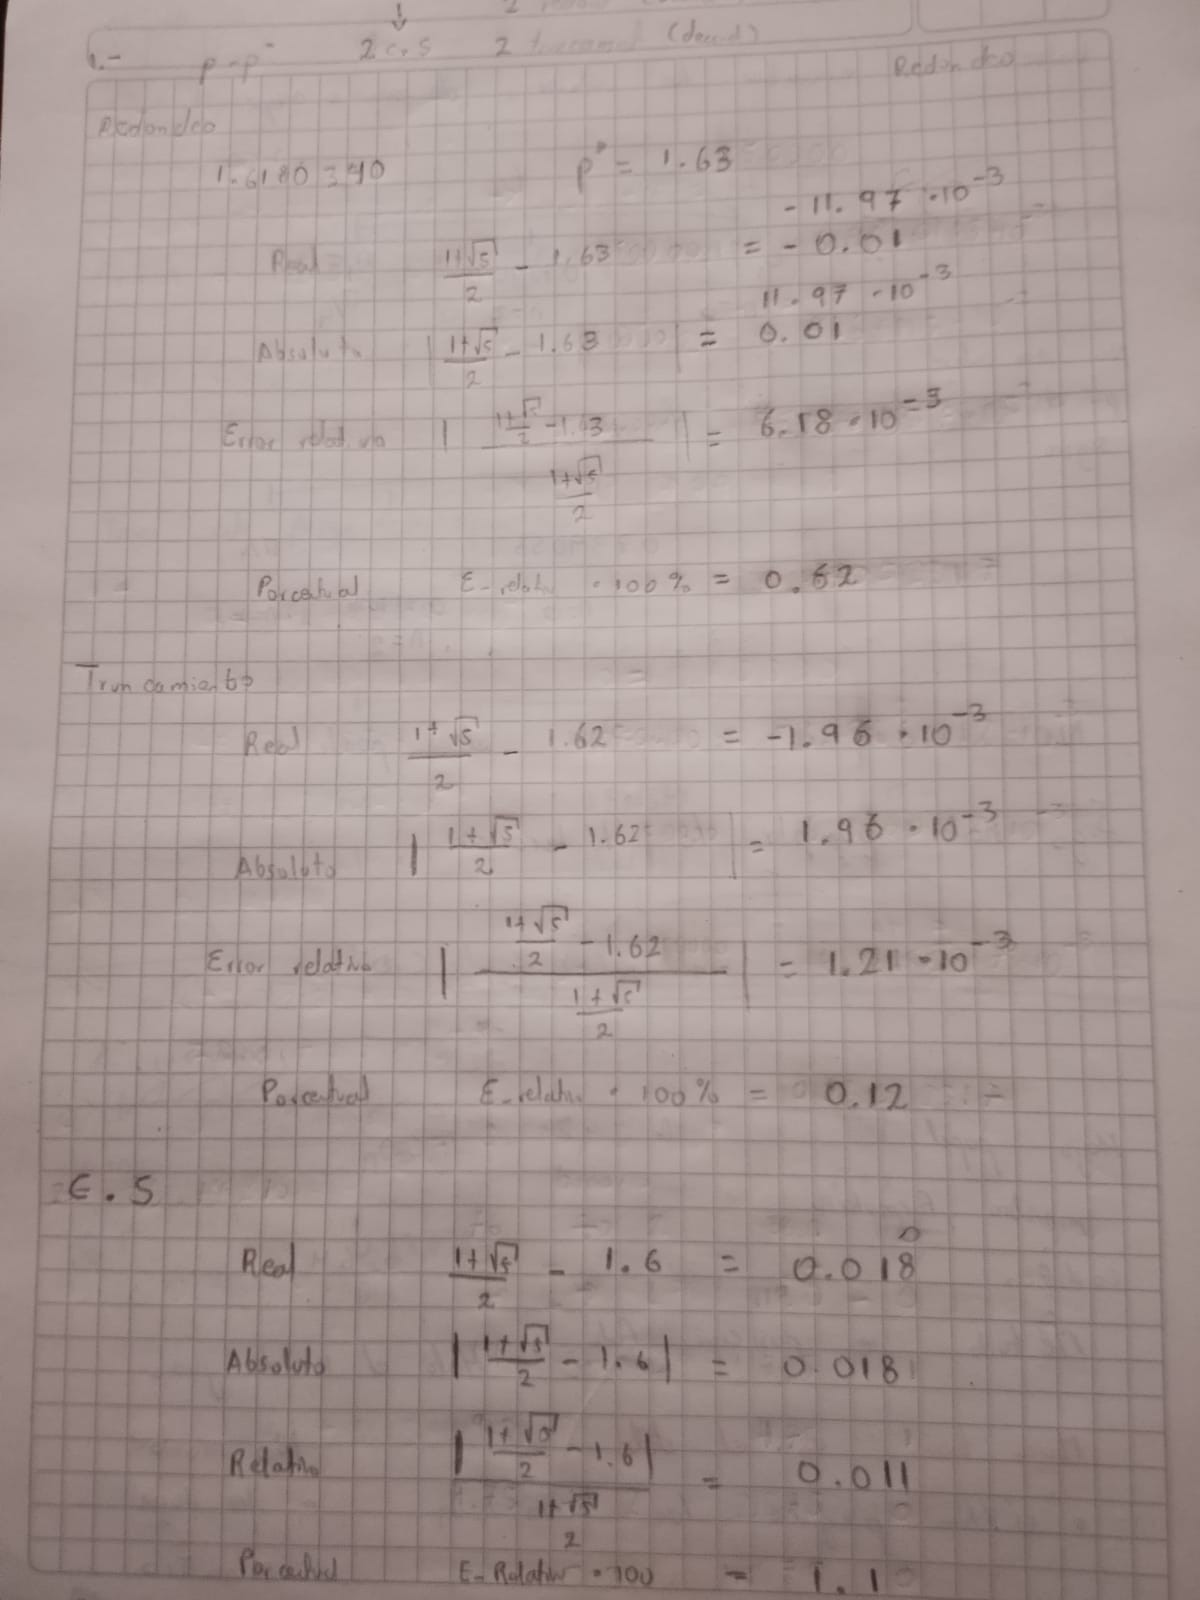 2 c.s 2 (decimal)
1.- p - p* Redondeo
Redondeo
1.6180340 p* = 1.63
- 11.97 · 10^-3
Real (1+√5)/2 - 1.63 = - 0.01
11.97 · 10^-3
Absoluto |(1+√5)/2 - 1.63| = 0.01
Error relativo |((1+√5)/2 - 1.63)/((1+√5)/2)| = 6.18 · 10^-3
Porcentual E-relativ · 100% = 0.62
Truncamiento
Real (1+√5)/2 - 1.62 = -1.96 · 10^-3
Absoluto |(1+√5)/2 - 1.62| = 1.96 · 10^-3
Error relativo |((1+√5)/2 - 1.62)/((1+√5)/2)| = 1.21 · 10^-3
Porcentual E-relativ · 100% = 0.12
C.S
Real (1+√5)/2 - 1.6 = 0.018
Absoluto |(1+√5)/2 - 1.6| = 0.018
Relativo |(1+√5)/2 - 1.6|/((1+√5)/2) = 0.011
Porcentual E-Relativ · 100 = 1.1